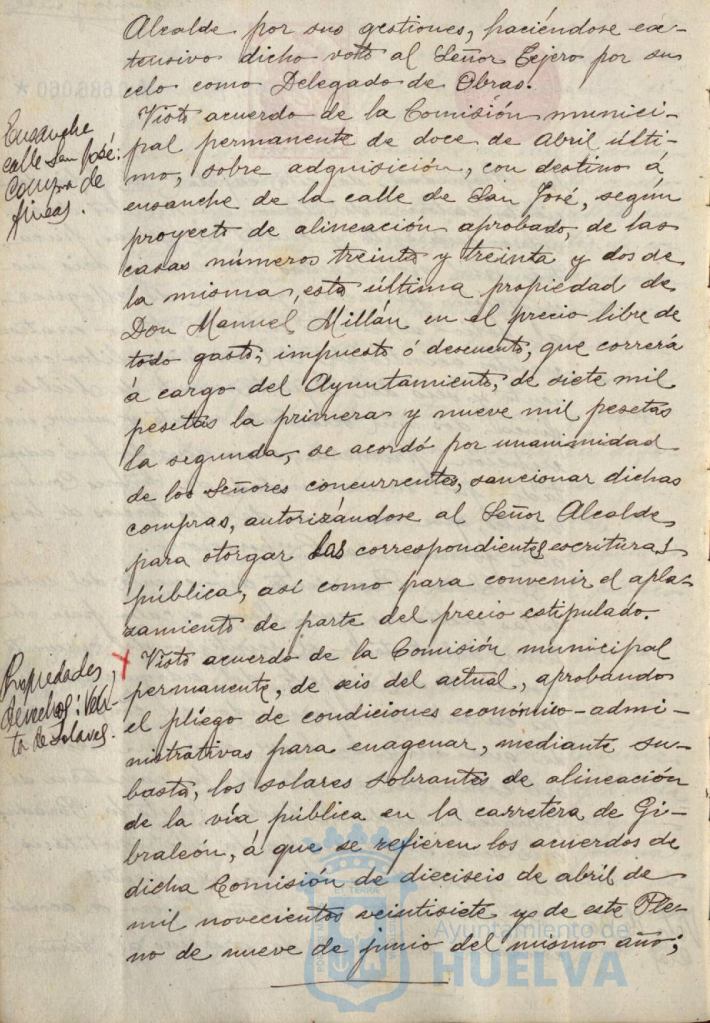 Alcalde por sus gestiones, haciéndose ex-
tensivo dicho voto al Señor Tejero por su
celo como Delegado de Obras.
Ensanche
calle San José:
Compra de
fincas.
Visto acuerdo de la Comisión munici-
pal permanente de doce de Abril últi-
mo, sobre adquisición, con destino á
ensanche de la calle de San José, según
proyecto de alineación aprobado, de las
casas números treinta y treinta y dos de
la misma, esta última propiedad de
Don Manuel Millán en el precio libre de
todo gasto, impuesto ó descuento, que correrá
á cargo del Ayuntamiento, de siete mil
pesetas la primera y nueve mil pesetas
la segunda, se acordó por unanimidad
de los Señores concurrentes, sancionar dichas
compras, autorizándose al Señor Alcalde,
para otorgar las correspondientes escrituras
pública, así como para convenir el apla-
zamiento de parte del precio estipulado.
Propiedades,
derechos: Ven-
ta de solares.
Visto acuerdo de la Comisión municipal
permanente, de seis del actual, aprobando
el pliego de condiciones económico-admi-
nistrativas para enagenar, mediante su-
basta, los solares sobrantes de alineación
de la vía pública en la carretera de Gi-
braleón, á que se refieren los acuerdos de
dicha Comisión de dieciseis de abril de
mil novecientos veintisiete y de este Ple-
no de nueve de junio del mismo año;
Ayuntamiento de
HUELVA